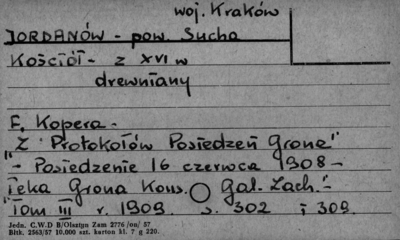 woj. Kraków
JORDANÓW - pow. Sucha
Kościół - z XVI w
drewniany
F. Kopera -
"Z Protokołów Posiedzeń Grona"
"- Posiedzenie 16 czerwca 1908 -
Teka Grona Kons. Gal. Zach."-
"Tom III r. 1909. s. 302 i 309.
Jedn. C.W.D B/Olsztyn Zam 2776 /on/ 57
Bltk. 2563/57 10.000 szt. karton kl. 7 g 220.